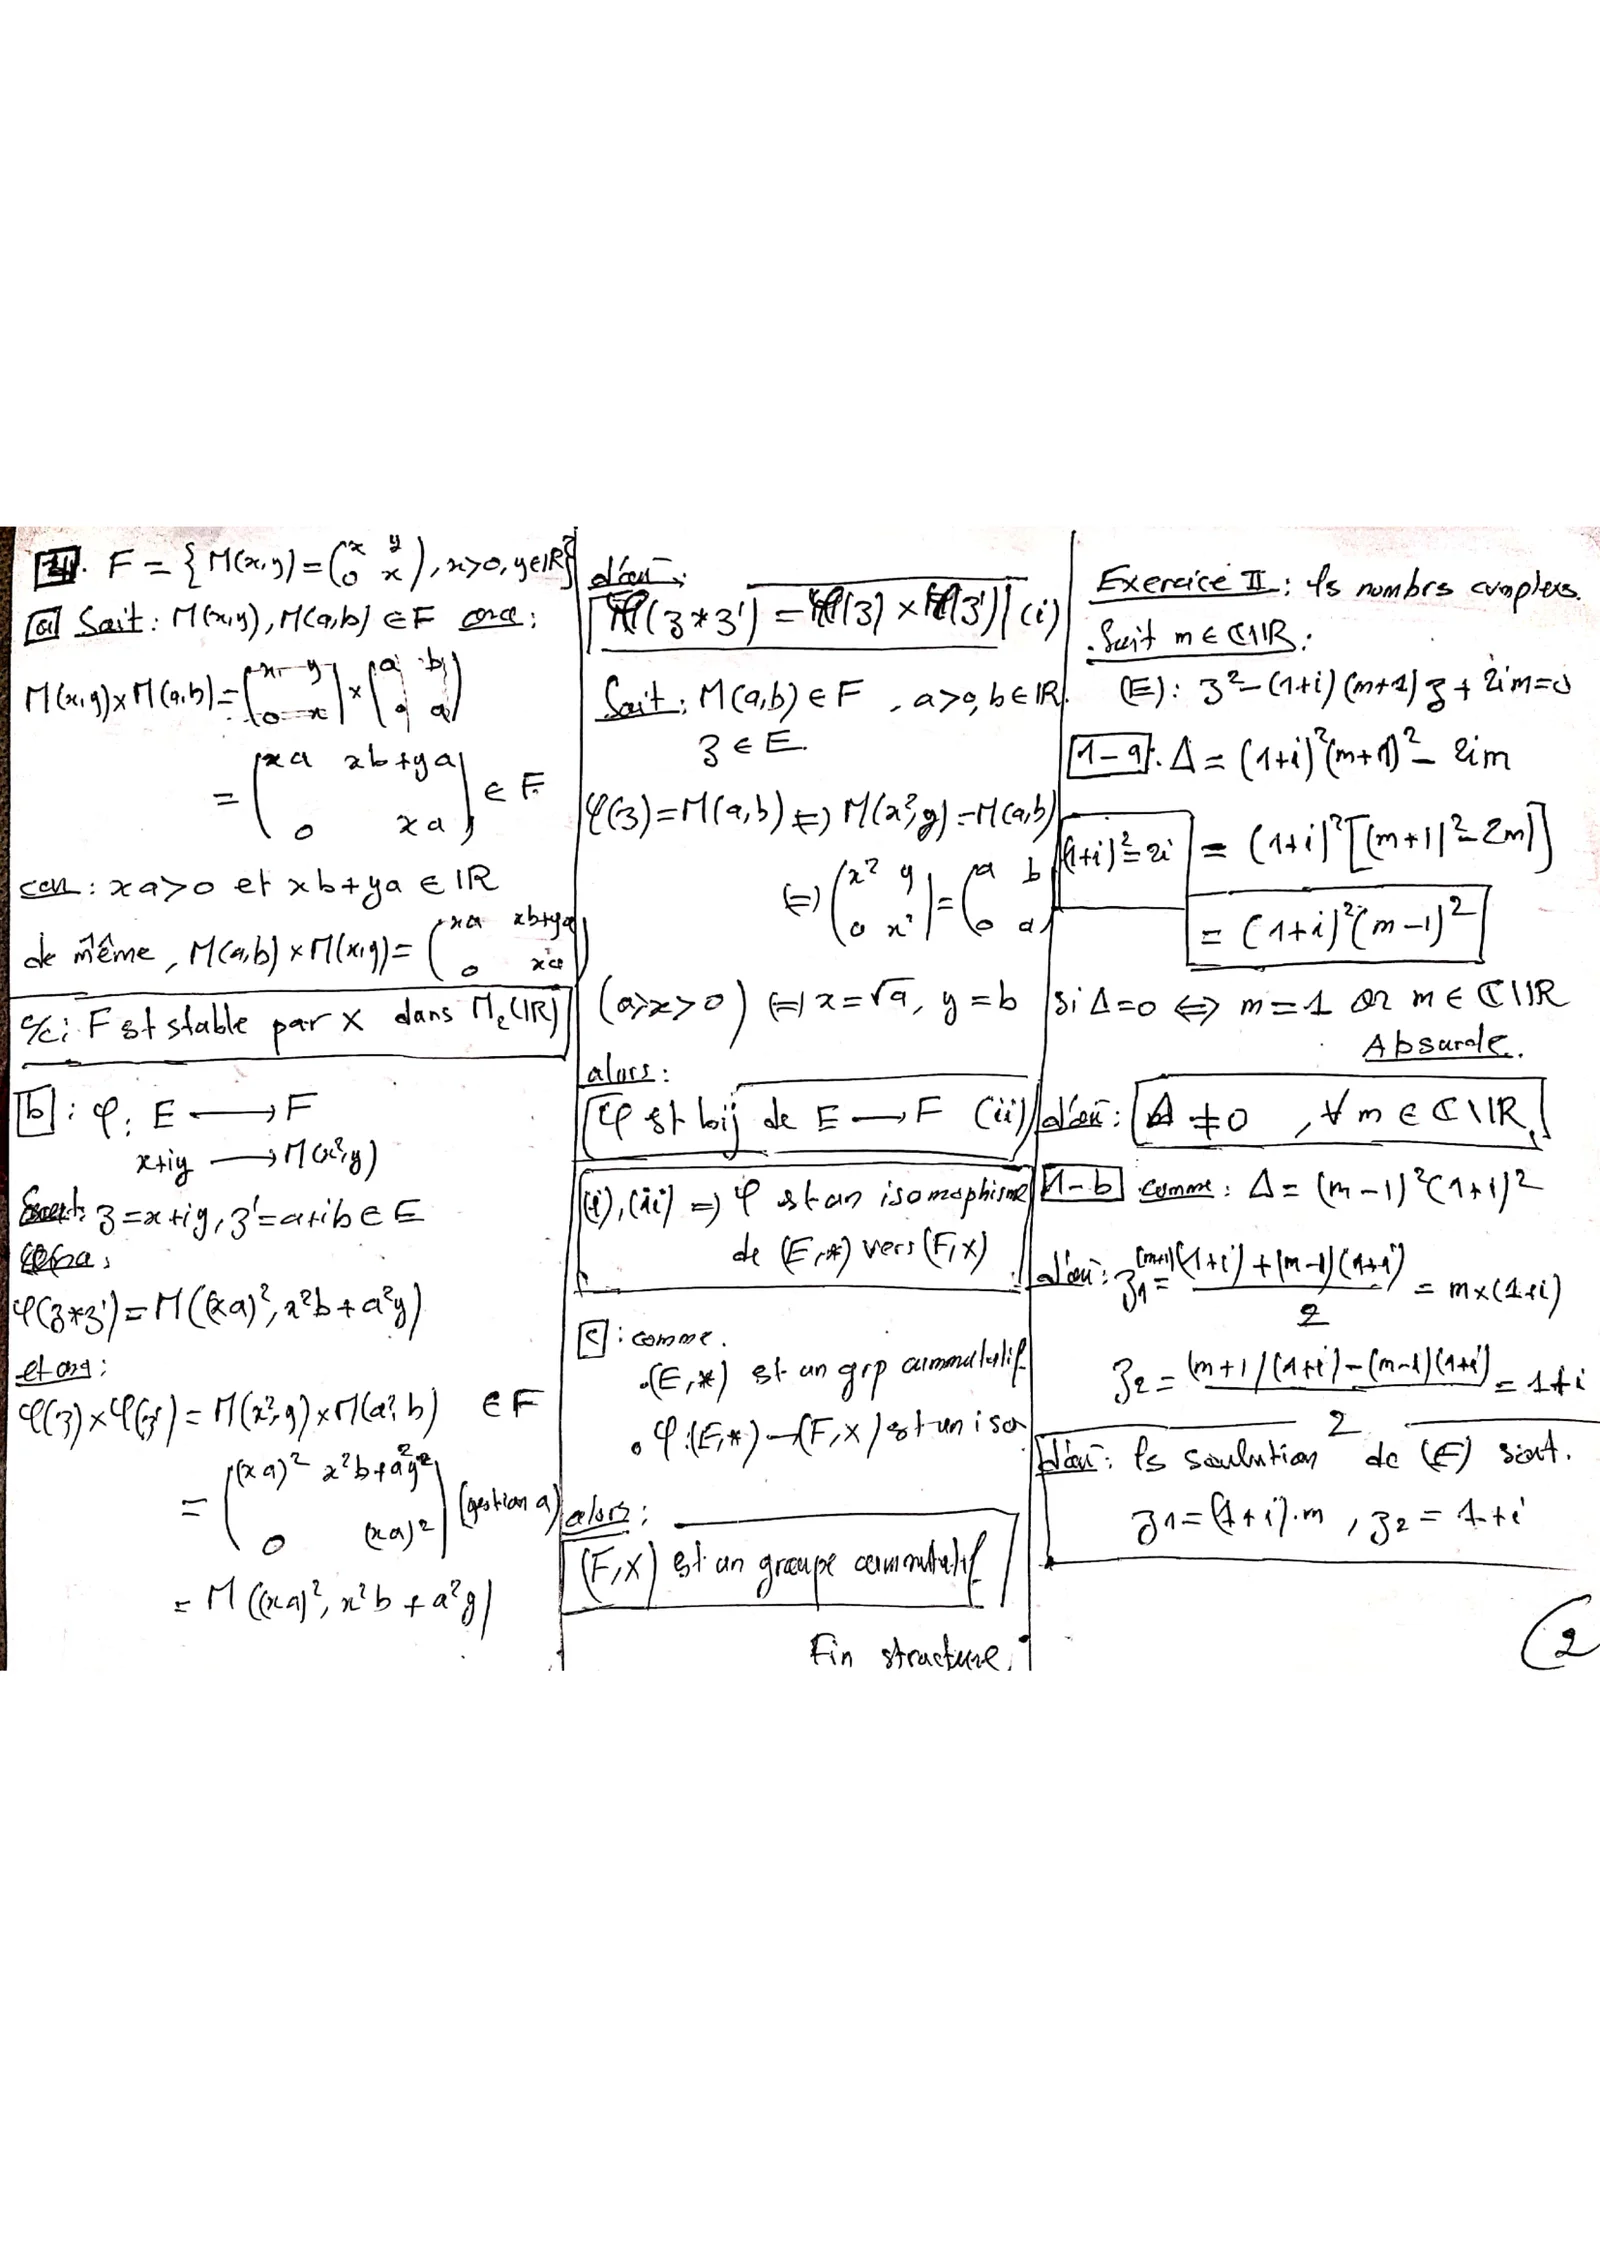 4. F = { M(x,y) = (x y ; 0 x), x>0, y∈IR }
a Soit : M(x,y), M(a,b) ∈ F ona :
M(x,y) × M(a,b) = (x y ; 0 x) × (a b ; 0 a)
= (xa xb+ya ; 0 xa) ∈ F
car : xa>0 et xb+ya ∈ IR
de même, M(a,b) × M(x,y) = (xa xb+ya ; 0 xa)
c/c : F est stable par × dans M₂(IR)
b : φ : E ⟶ F
x+iy ⟶ M(x²,y)
Soient : z = x+iy, z' = a+ib ∈ E
ona :
φ(z*z') = M((xa)², x²b + a²y)
et ona :
φ(z) × φ(z') = M(x²,y) × M(a²,b) ∈ F
= ((xa)² x²b+a²y² ; 0 (xa)²) (question a)
= M((xa)², x²b + a²y)
d'où :
φ(z*z') = φ(z) × φ(z') (i)
Soit : M(a,b) ∈ F , a>0, b∈IR.
z ∈ E.
φ(z) = M(a,b) ⟺ M(x²,y) = M(a,b)
⟺ (x² y ; 0 x²) = (a b ; 0 a)
(a,x>0) ⟺ x = √a, y = b
alors :
φ est bij de E ⟶ F (ii)
(i), (ii) ⟹ φ est un isomophisme
de (E,*) vers (F,×)
c : comme.
.(E,*) est un grp commutatif
• φ : (E,*) ⟶ (F,×) est un iso
alors :
(F,×) est un groupe commutatif
Fin structure.
Exercice II : ls nombrs complexs.
. Soit m ∈ ℂ\IR :
(E) : z² - (1+i)(m+1)z + 2im = 0
1-a : Δ = (1+i)²(m+1)² - 2im
(1+i)² = 2i = (1+i)²[(m+1)² - 2m]
= (1+i)²(m-1)²
si Δ=0 ⟺ m=1 or m ∈ ℂ\IR
Absurde.
d'où : Δ ≠ 0 , ∀ m ∈ ℂ\IR.
1-b comme : Δ = (m-1)²(1+i)²
d'où : z1 = ((m+1)(1+i) + (m-1)(1+i)) / 2 = m×(1+i)
z2 = ((m+1)(1+i) - (m-1)(1+i)) / 2 = 1+i
d'où : ls soulution de (E) sont.
z1 = (1+i).m , z2 = 1+i
2